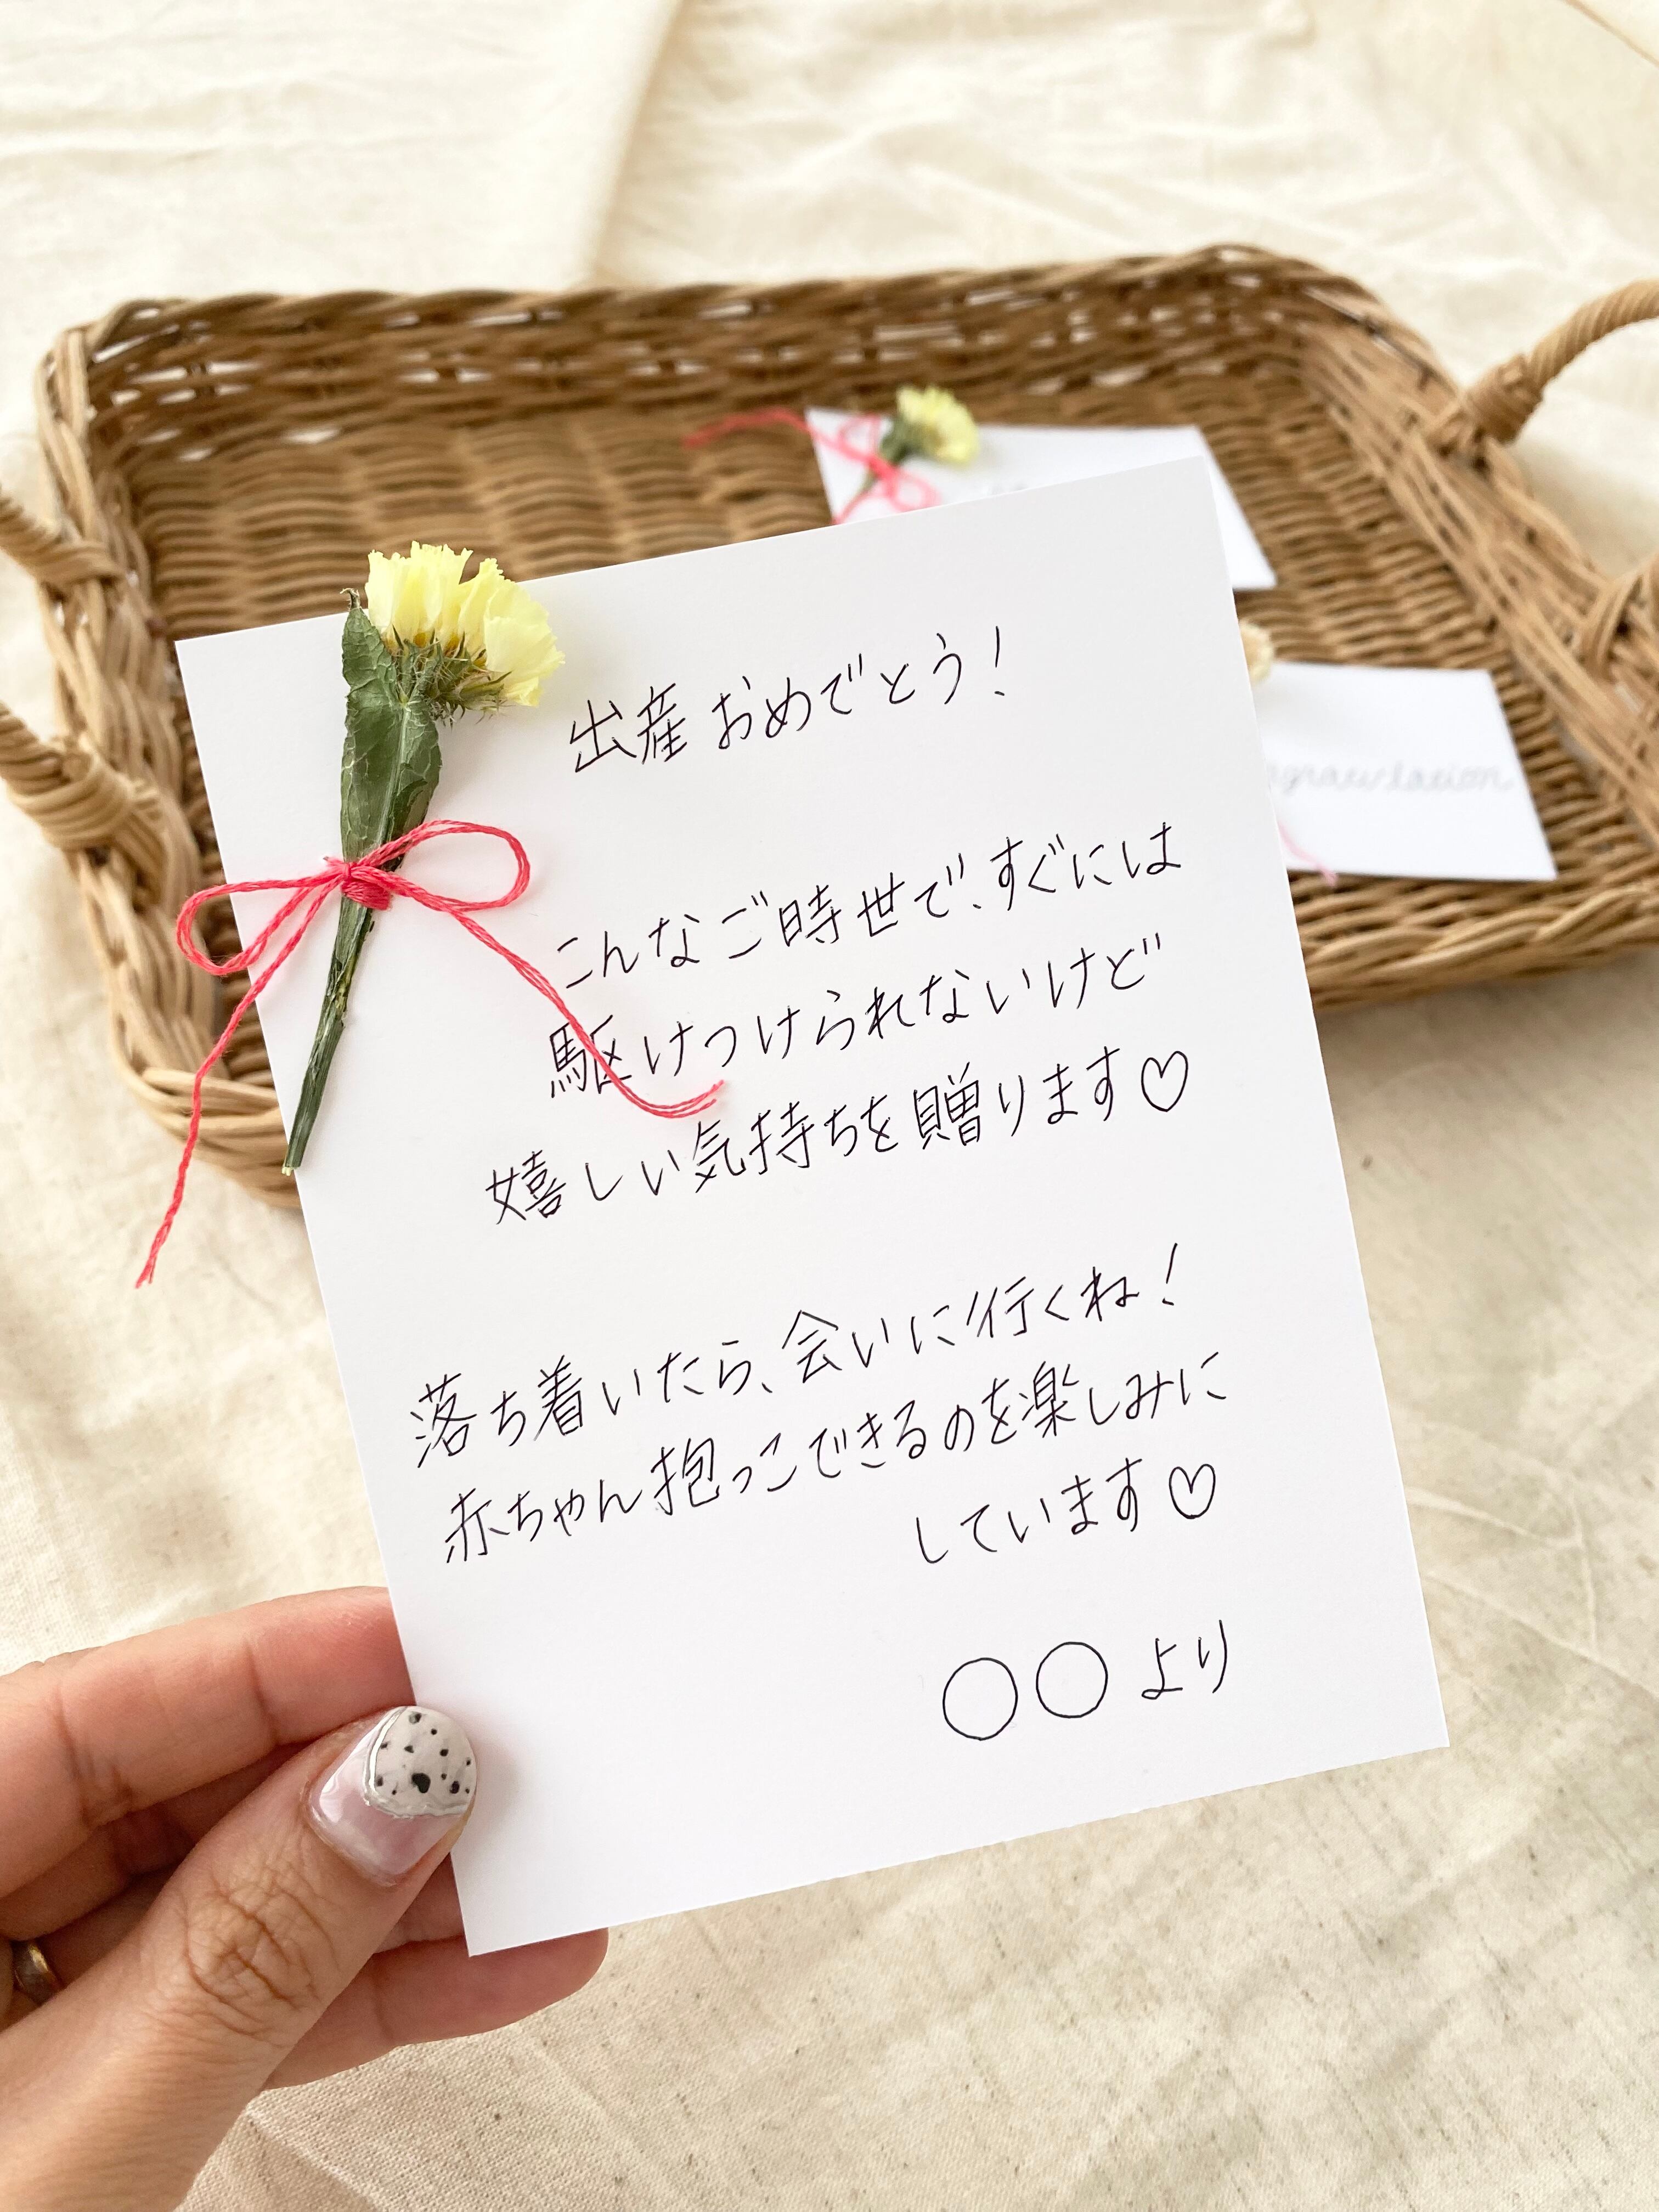 出産おめでとう！
こんなご時世で、すぐには
駆けつけられないけど
嬉しい気持ちを贈ります♡
落ち着いたら、会いに行くね！
赤ちゃん抱っこできるのを楽しみに
しています♡
〇〇より